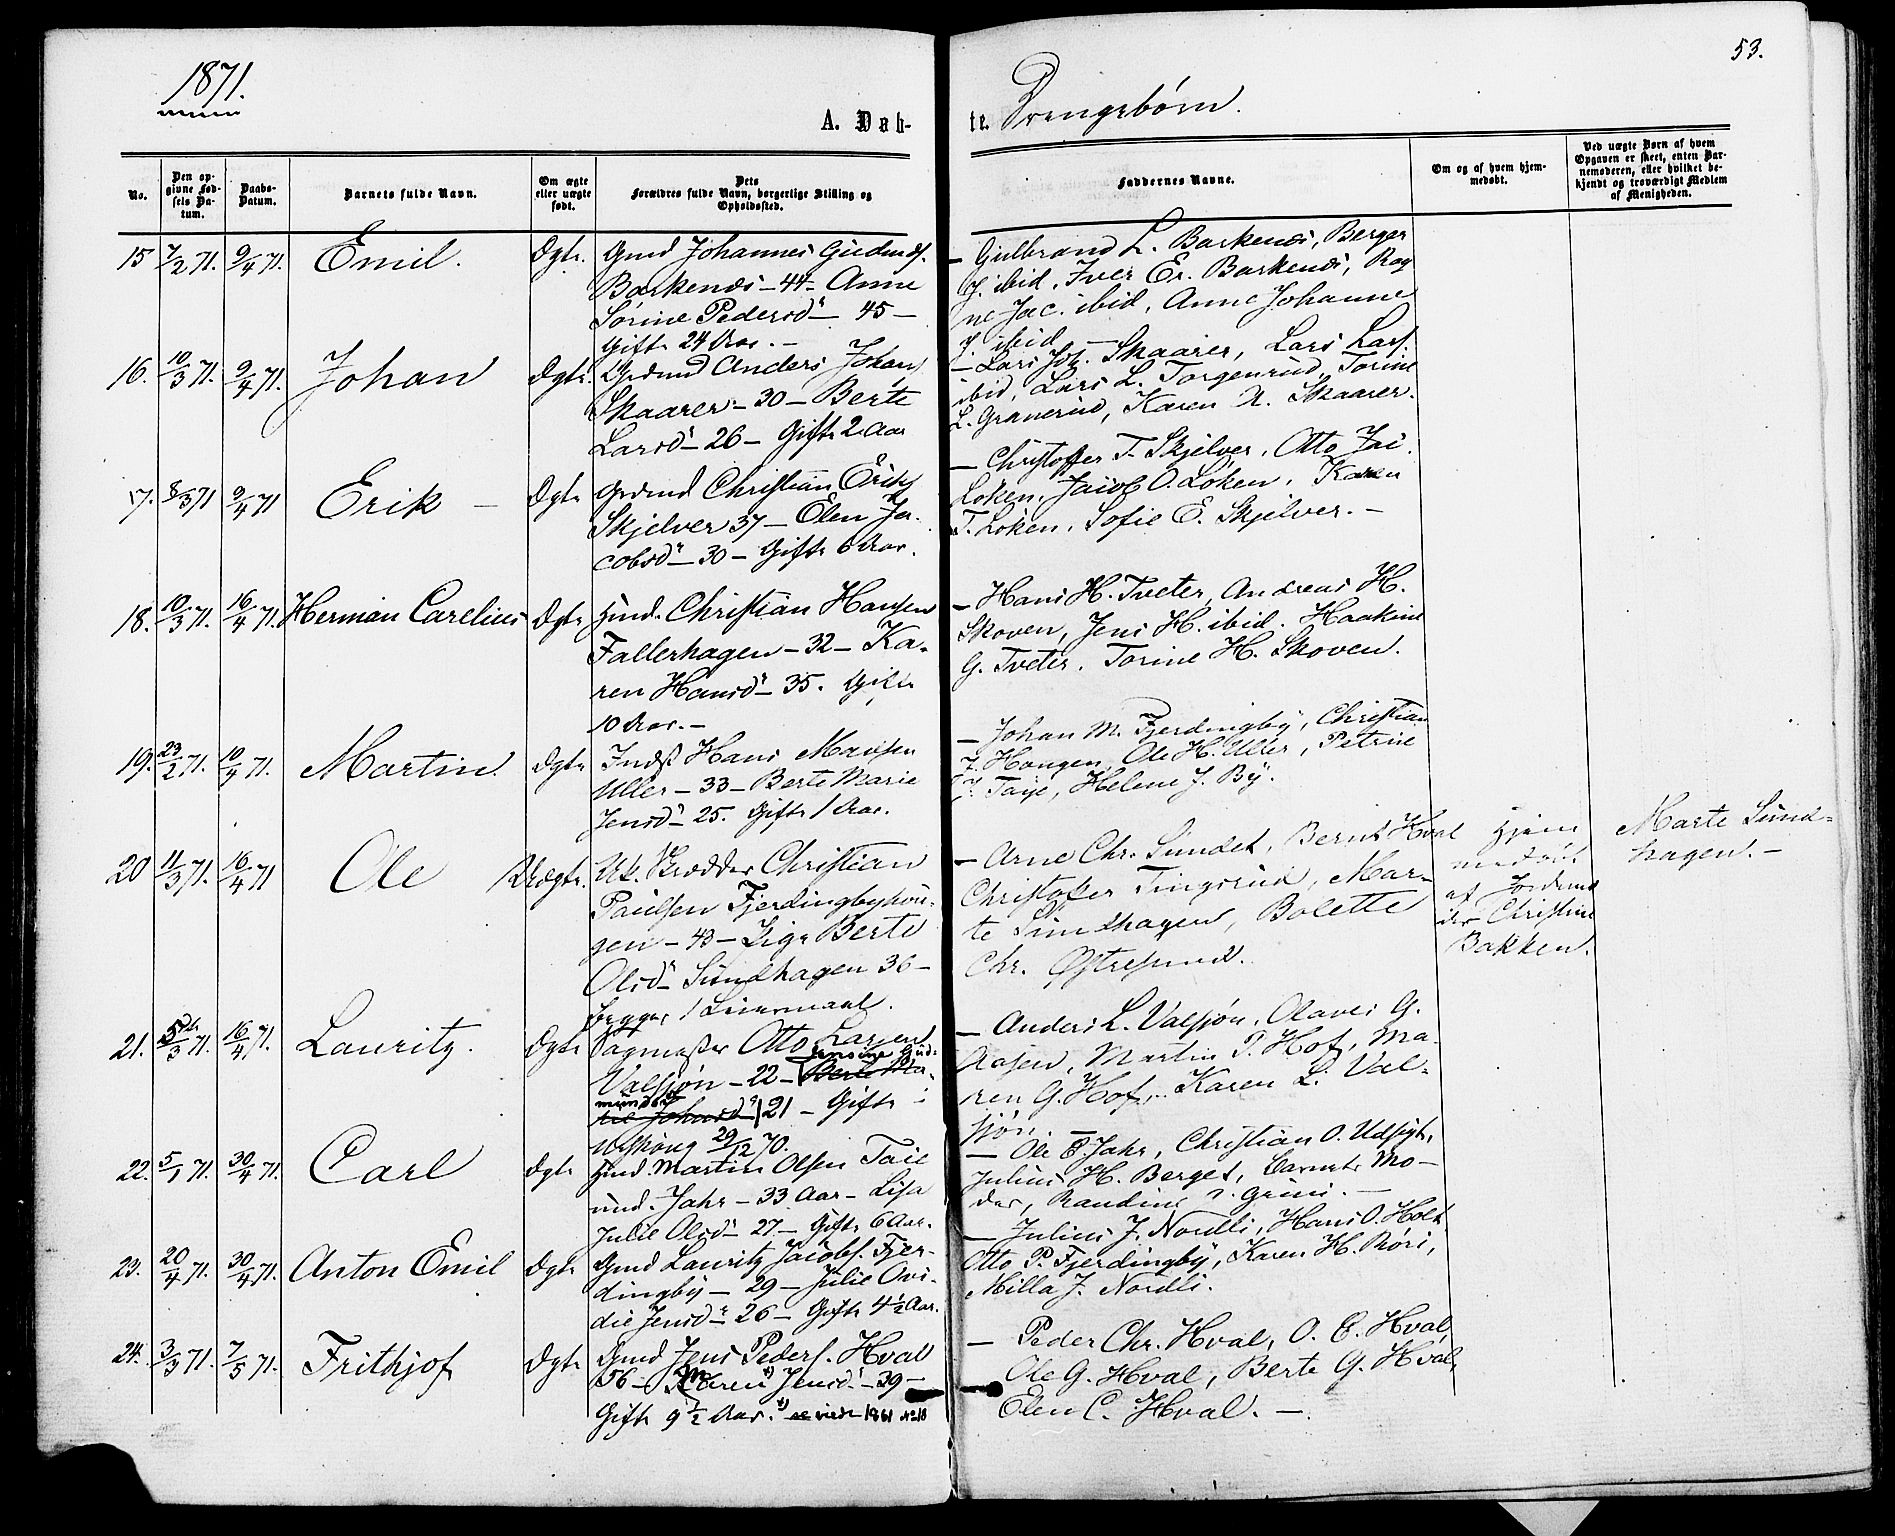 1871.
53.
A. Døb-
te. Drengebørn.
No.
Den op-
givne Fød-
sels Da-
tum.
Daabs-
Datum.
Barnets fulde Navn.
Om ægte
eller uægte
født.
Dets
Forældres fulde Navn, borgerlige Stilling og
Opholdssted.
Faddernes Navne.
Om og af hvem hjem-
medøbt.
Ved uægte Børn af hvem
Opgaven er skeet, enten Bar-
nemoderen, eller hvilket be-
kjendt og troværdigt Medlem
af Menigheden.
15 7/2 71. 9/4 71. Emil. Ægte. Gmd Johannes Gudmds.
Barkenæs – 44 – Anne
Sørine Pedersdr – 45 –
Gifte 24 Aar. –
– Gulbrand L. Barkenæs, Berger
J. ibid, Iver Er. Barkenæs, Rag
ne Jac. ibid, Anne Johanne
J. ibid –
16. 10/3 71. 9/4 71. Johan Ægte. Anders Johans
Skaarer – 30 – Berte
Larsdr – 26 – Gifte 2 Aar
– Lars Joh. Skaarer, Lars Lars.
ibid, Lars L. Torgenrud, Torine
L. Granerud, Karen A. Skaarer.
17. 8/3 71 9/4 71 Erik – Ægte Grdmd Christian Eriks
Skjelver 37 – Elen Ja-
cobsdr – 30 – Gifte 6 Aar.
– Christoffer T. Skjelver, Otto Jac.
Løken, Jacob O. Løken, Karen
T. Løken, Sofie E. Skjelver. –
18. 10/3 71. 16/4 71. Herman Carelius Ægte Hmd. Christian Hansen
Fallerhagen – 32 – Ka-
ren Hansdr – 35. Gifte
10 Aar. –
– Hans H. Tveter, Andreas H.
Skoven, Jens H. ibid. Haakine
G. Tveter, Torine H. Skoven.
19. 23/2 71. 10/4 71. Martin. Ægte Indst Hans
Uller – 33 – Berte Marie
Jensdr – 25. Gifte 1 Aar.
– Johan M. Fjerdingby, Christian
J. Haugen, Ole H. Uller, Petrine
J. Taye, Helene J. By.
20 11/3 71. 16/4 71 Ole Uægte. Uk. Skrædder Christian
Paulsen Fjerdingbyhau-
gen – 43 – Pige Berte
Olsdr Sundhagen 36 –
begges 1 Leiermaal.
– Arne Chr. Sundet, Bernt Hval
Christoffer Tingsrud, Mar-
te Sundhagen, Bolette
Chr. Østresund.
Hjem
medøbt
af Jordemo
der Christine
Bakken.
Marte Sund-
hagen. –
21. 5/3 71. 16/4 71. Lauritz. Ægte Sagmester Otto Larsen
Valsjøn – 22 – Jensine Gud-
mundsdr 21 – Gifte i
Urskoug 29/12 70.
– Anders L. Valsjøn, Olaves G.
Aasen, Martin P. Hof, Ma-
ren G. Hof, Karen L. Val-
sjøn. –
22. 5/1 71. 30/4 71. Carl Ægte Hmd. Martin Olsen Taie
und. Jahr – 33 Aar – Lisa
Julie Olsdr 27 – Gifte 6 Aar.
– Ole E. Jahr, Christian O. Udsigt,
Julius H. Berget, Barnets Mo-
der, Randine Grini. –
23. 20/4 71. 30/4 71. Anton Emil Ægte Gmd Lauritz Jacobs. Fjer-
dingby – 29 – Julie Ovi-
die Jensdr 26 – Gifte 4½ Aar.
– Julius J. Nordli, Hans O. Holt
Otto P. Fjerdingby, Karen H. Röri,
Milla J. Nordli.
24. 3/3 71. 7/5 71. Frithjof Ægte Gmd Jens Peders. Hval
56 – Maren Jensdr – 39 –
Gifte 9½ Aar. se vide 1861 No 18
– Peder Chr. Hval, O. E. Hval
Ole G. Hval, Berte G. Hval,
Elen C. Hval. –